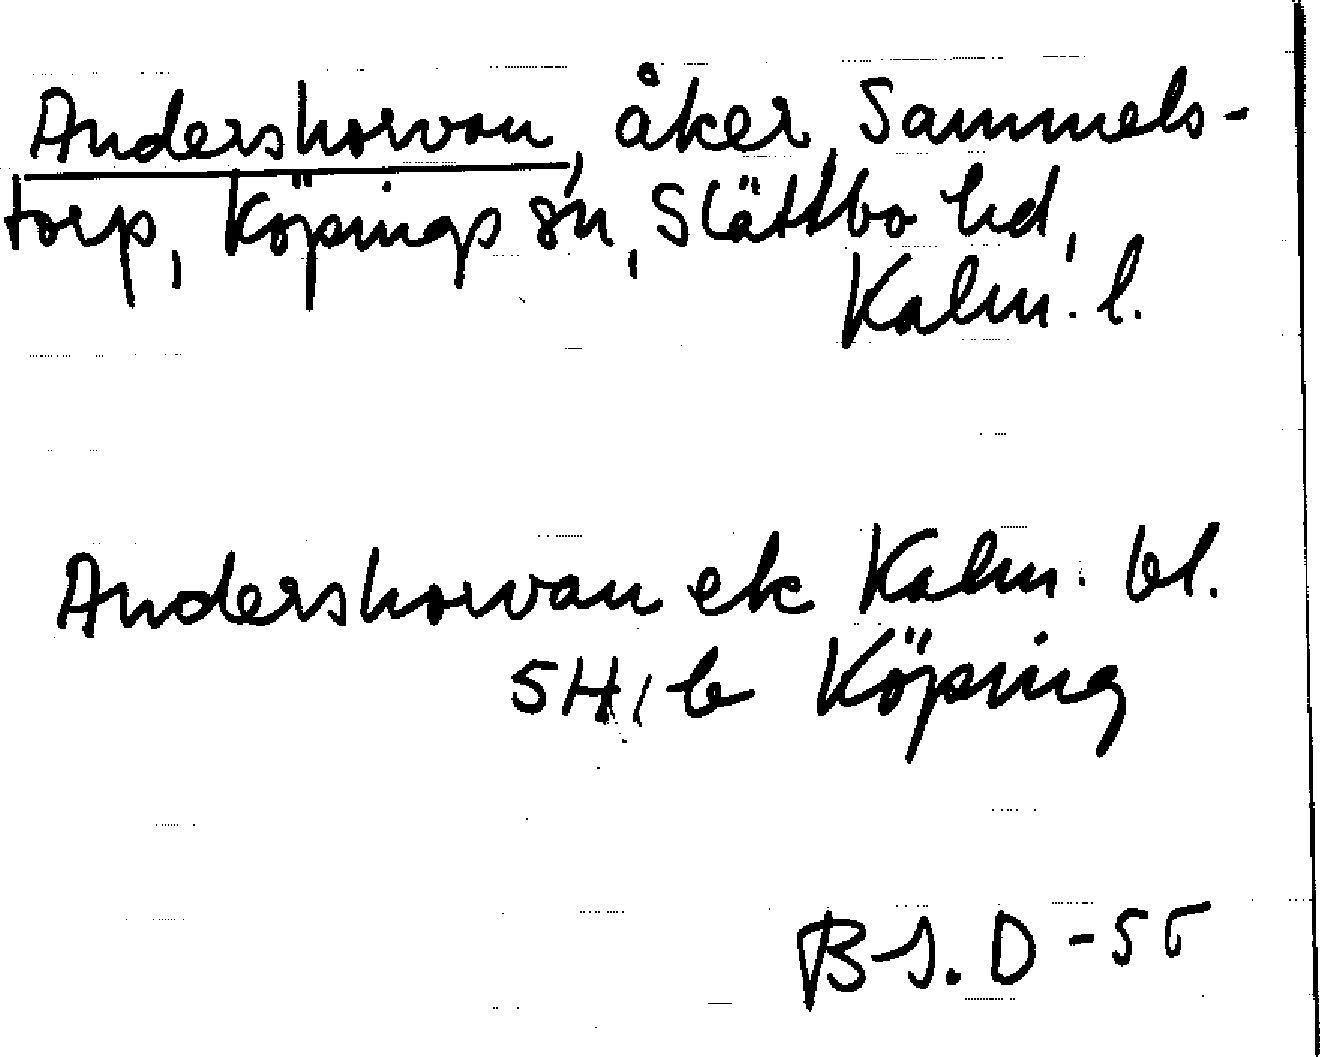 Andershorvan, åker, Sammels-
torp, Köpings sn, Slättbo hd,
Kalm. l.
Andershorvan ek Kalm. bl.
5H, b Köping
B-J. D -55